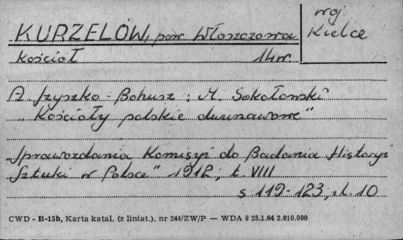 KURZELÓW, pow. Włoszczowa
woj. Kielce
kościół 14w.
A. Szyszko-Bohusz i M. Sokołowski
"Kościoły polskie dwunawowe"
"Sprawozdania Komisyi do Badania Historyi
Sztuki w Polsce" 1912, t. VIII
s 119-123, il. 10
CWD - B-15b, Karta katal. (z liniat.), nr 244/ZW/P — WDA 8 25.1.64 2.010.000